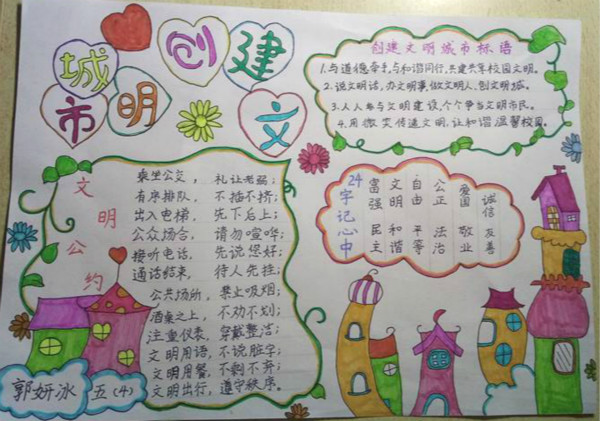 创建文明城市
创建文明城市标语
1.与道德牵手,与和谐同行,共建共享校园文明。
2.说文明话,办文明事,做文明人,创文明城。
3.人人参与文明建设,个个争当文明市民。
4.用微笑传递文明,让和谐温馨校园。
文明公约
乘坐公交,礼让老弱;
有序排队,不插不挤;
出入电梯,先下后上;
公众场合,请勿喧哗;
接听电话,先说您好;
通话结束,待人先挂;
公共场所,禁止吸烟;
酒桌之上,不劝不划;
注重仪表,穿戴整洁;
文明用语,不说脏字;
文明用餐,不剩不弃;
文明出行,遵守秩序。
24字记心中
富强 民主
文明 和谐
自由 平等
公正 法治
爱国 敬业
诚信 友善
郭妍冰 五(4)